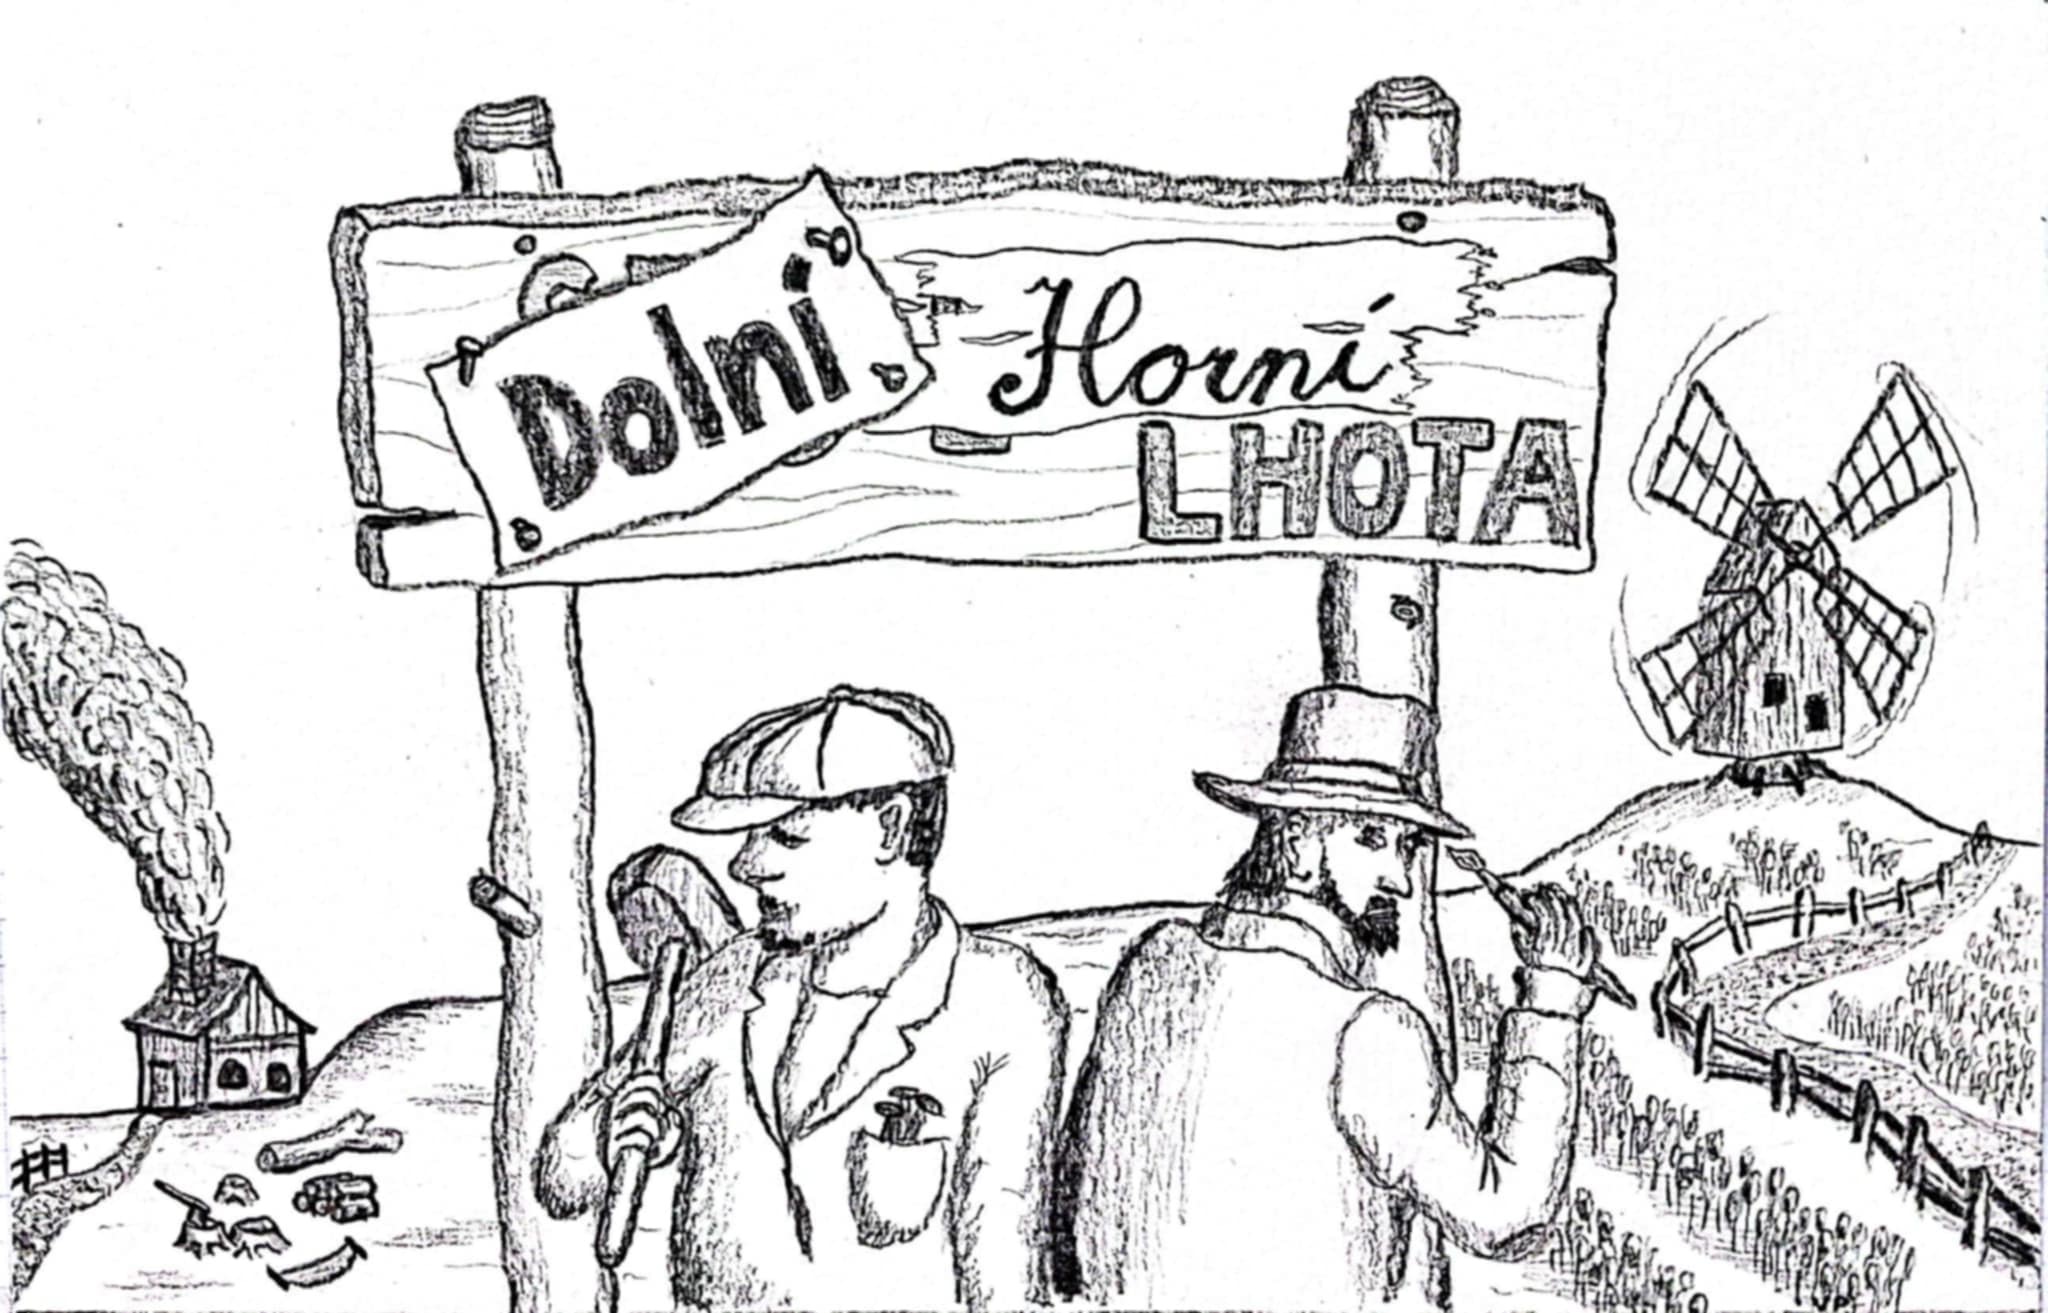 Dolní
Horní
LHOTA